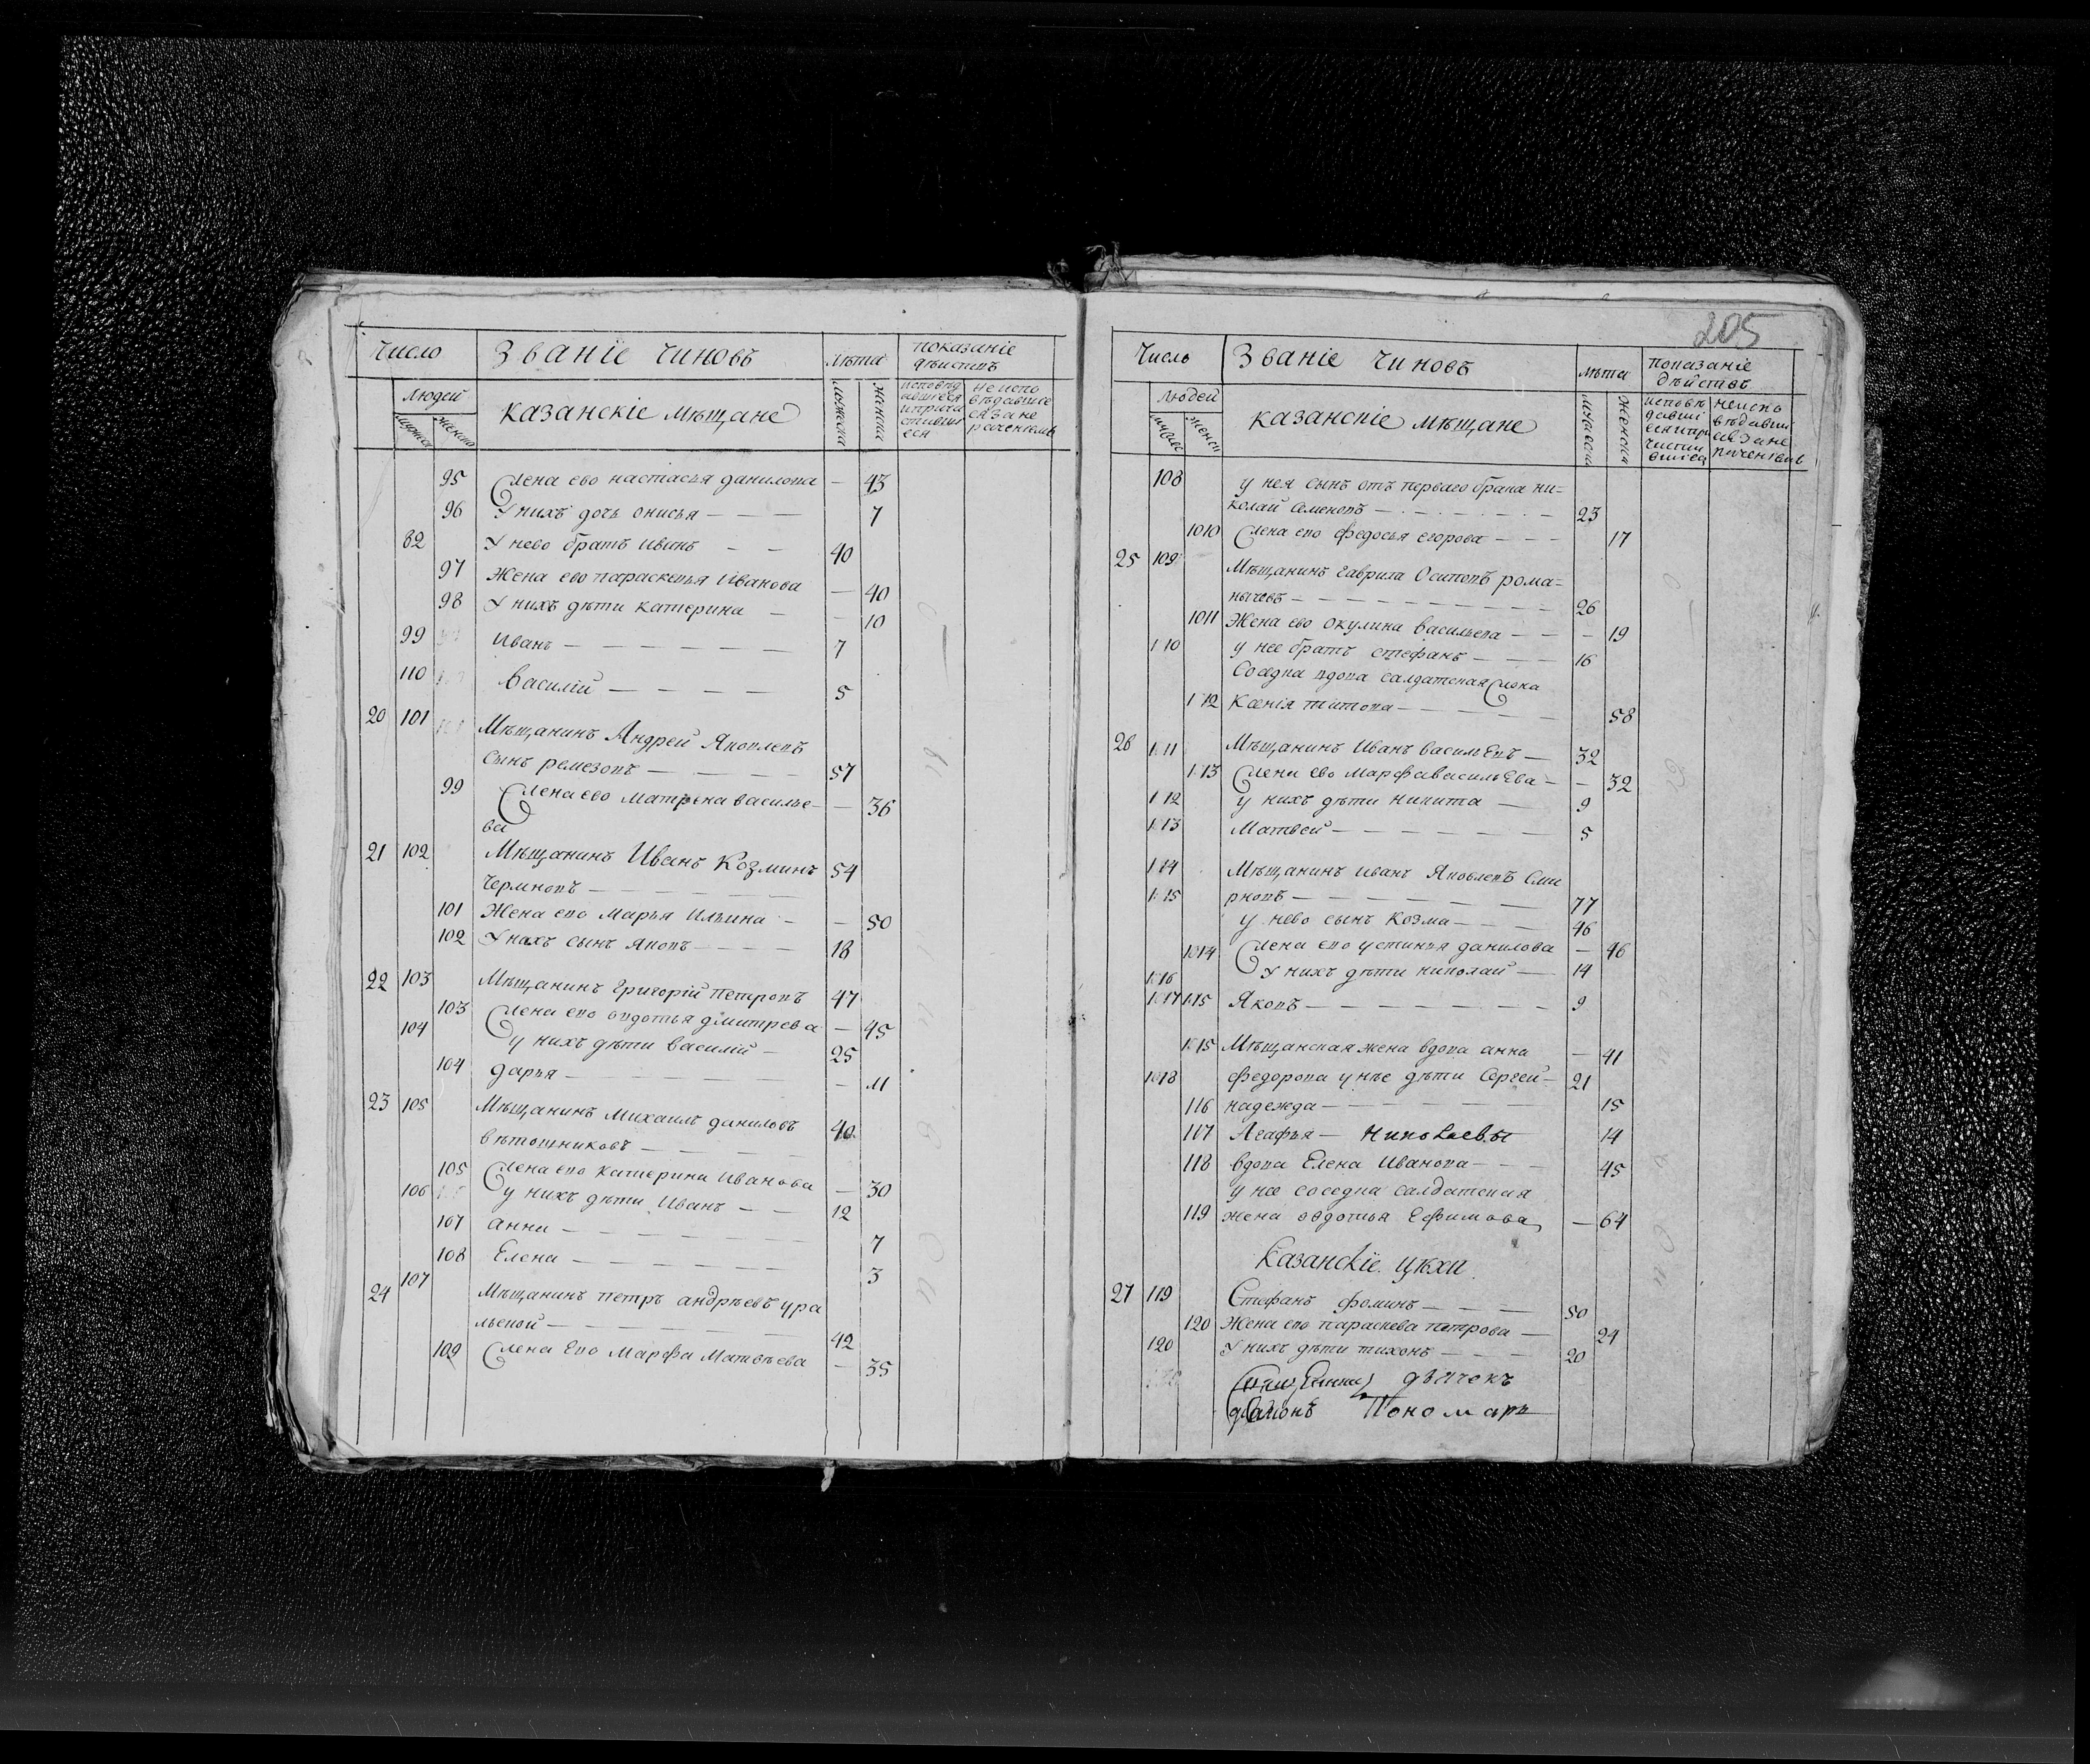 Число Званіе чиновъ лѣта показаніе дѣиствъ
людей казанскіе мѣщане мужеска женска
мужеска женска
95 Жена ево настасья данилова — 43
96 У нихъ дочь онисья — — — 7
82 У нево братъ Иванъ — — 40
97 Жена ево параскевья Иванова — 40
98 У нихъ дѣти катерина — — 10
99 Иванъ — — — — — — 7
110 Василій — — — — — 5
20 101 Мѣщанинъ Андрей Яковлевъ
сынъ ремезовъ — — — — 57
99 Жена ево Матрена василье— — 36
ва
21 102 Мѣщанинъ Иванъ Козминъ 54
Чермновъ — — — — —
101 Жена ево Марья Ильина — — 50
102 У нихъ сынъ Яковъ — — — — 18
22 103 Мѣщанинъ Григорій петровъ 47
103 Жена ево овдотья дмитрева — 45
104 у нихъ дѣти василий — 25
104 дарья — — — — — — 11
23 105 Мѣщанинъ Михаилъ даниловъ 40
вѣтошниковъ — — — —
105 Жена ево катерина Иванова — 30
106 у нихъ дѣти Иванъ — — 12
107 анна — — — — — — 7
108 Елена — — — — — — 3
24 107 Мѣщанинъ петръ андрѣевъ ура
льской — — — — — — 42
109 Жена Ево Марфа Матвѣева — 35
205
Число Званіе Чиновъ лѣта показаніе дѣйствъ
людей казанскіе мѣщане
108 у нея сынъ отъ перваго брака ни=
колай семеновъ — — — — — 23
1010 Жена ево федосья егорова — — — 17
25 109 Мѣщанинъ гаврила Осиповъ рома=
нычевъ — — — — — — — 26
1011 Жена ево окулина васильева — — — 19
110 у нее братъ стефанъ — — — 16
Соседка вдова салдатская жена
112 Ксенія титова — — — — — 58
26 111 Мѣщанинъ Иванъ васильЕвъ — 32
113 Жена ево Марфа васильЕва — — 32
112 у нихъ дѣти никита — 9
113 Матвей — — — — — — 5
114 Мѣщанинъ Иванъ Яковлевъ Сми
115 рновъ — — — — — — 77
у нево сынъ Козма — — — 46
1014 Жена ево устинья данилова — 46
116 У нихъ дѣти николай — 14
117 115 Яковъ — — — — — — 9
1015 Мѣщанская жена вдова анна — 41
1018 федорова у нѣе дѣти Сергей — 21
116 надежда — — — — — 15
117 Агафья — Николаевы 14
118 вдова Елена Иванова — — — 45
у нее соседка салдатская
119 жена овдотья Ефимова — 64
Казанскіе цѣхи
27 119 Стефанъ фоминъ — — — 50
120 Жена ево параскева петрова — 24
120 У нихъ дѣти тихонъ — — — 20
дьячекъ
Пономарь